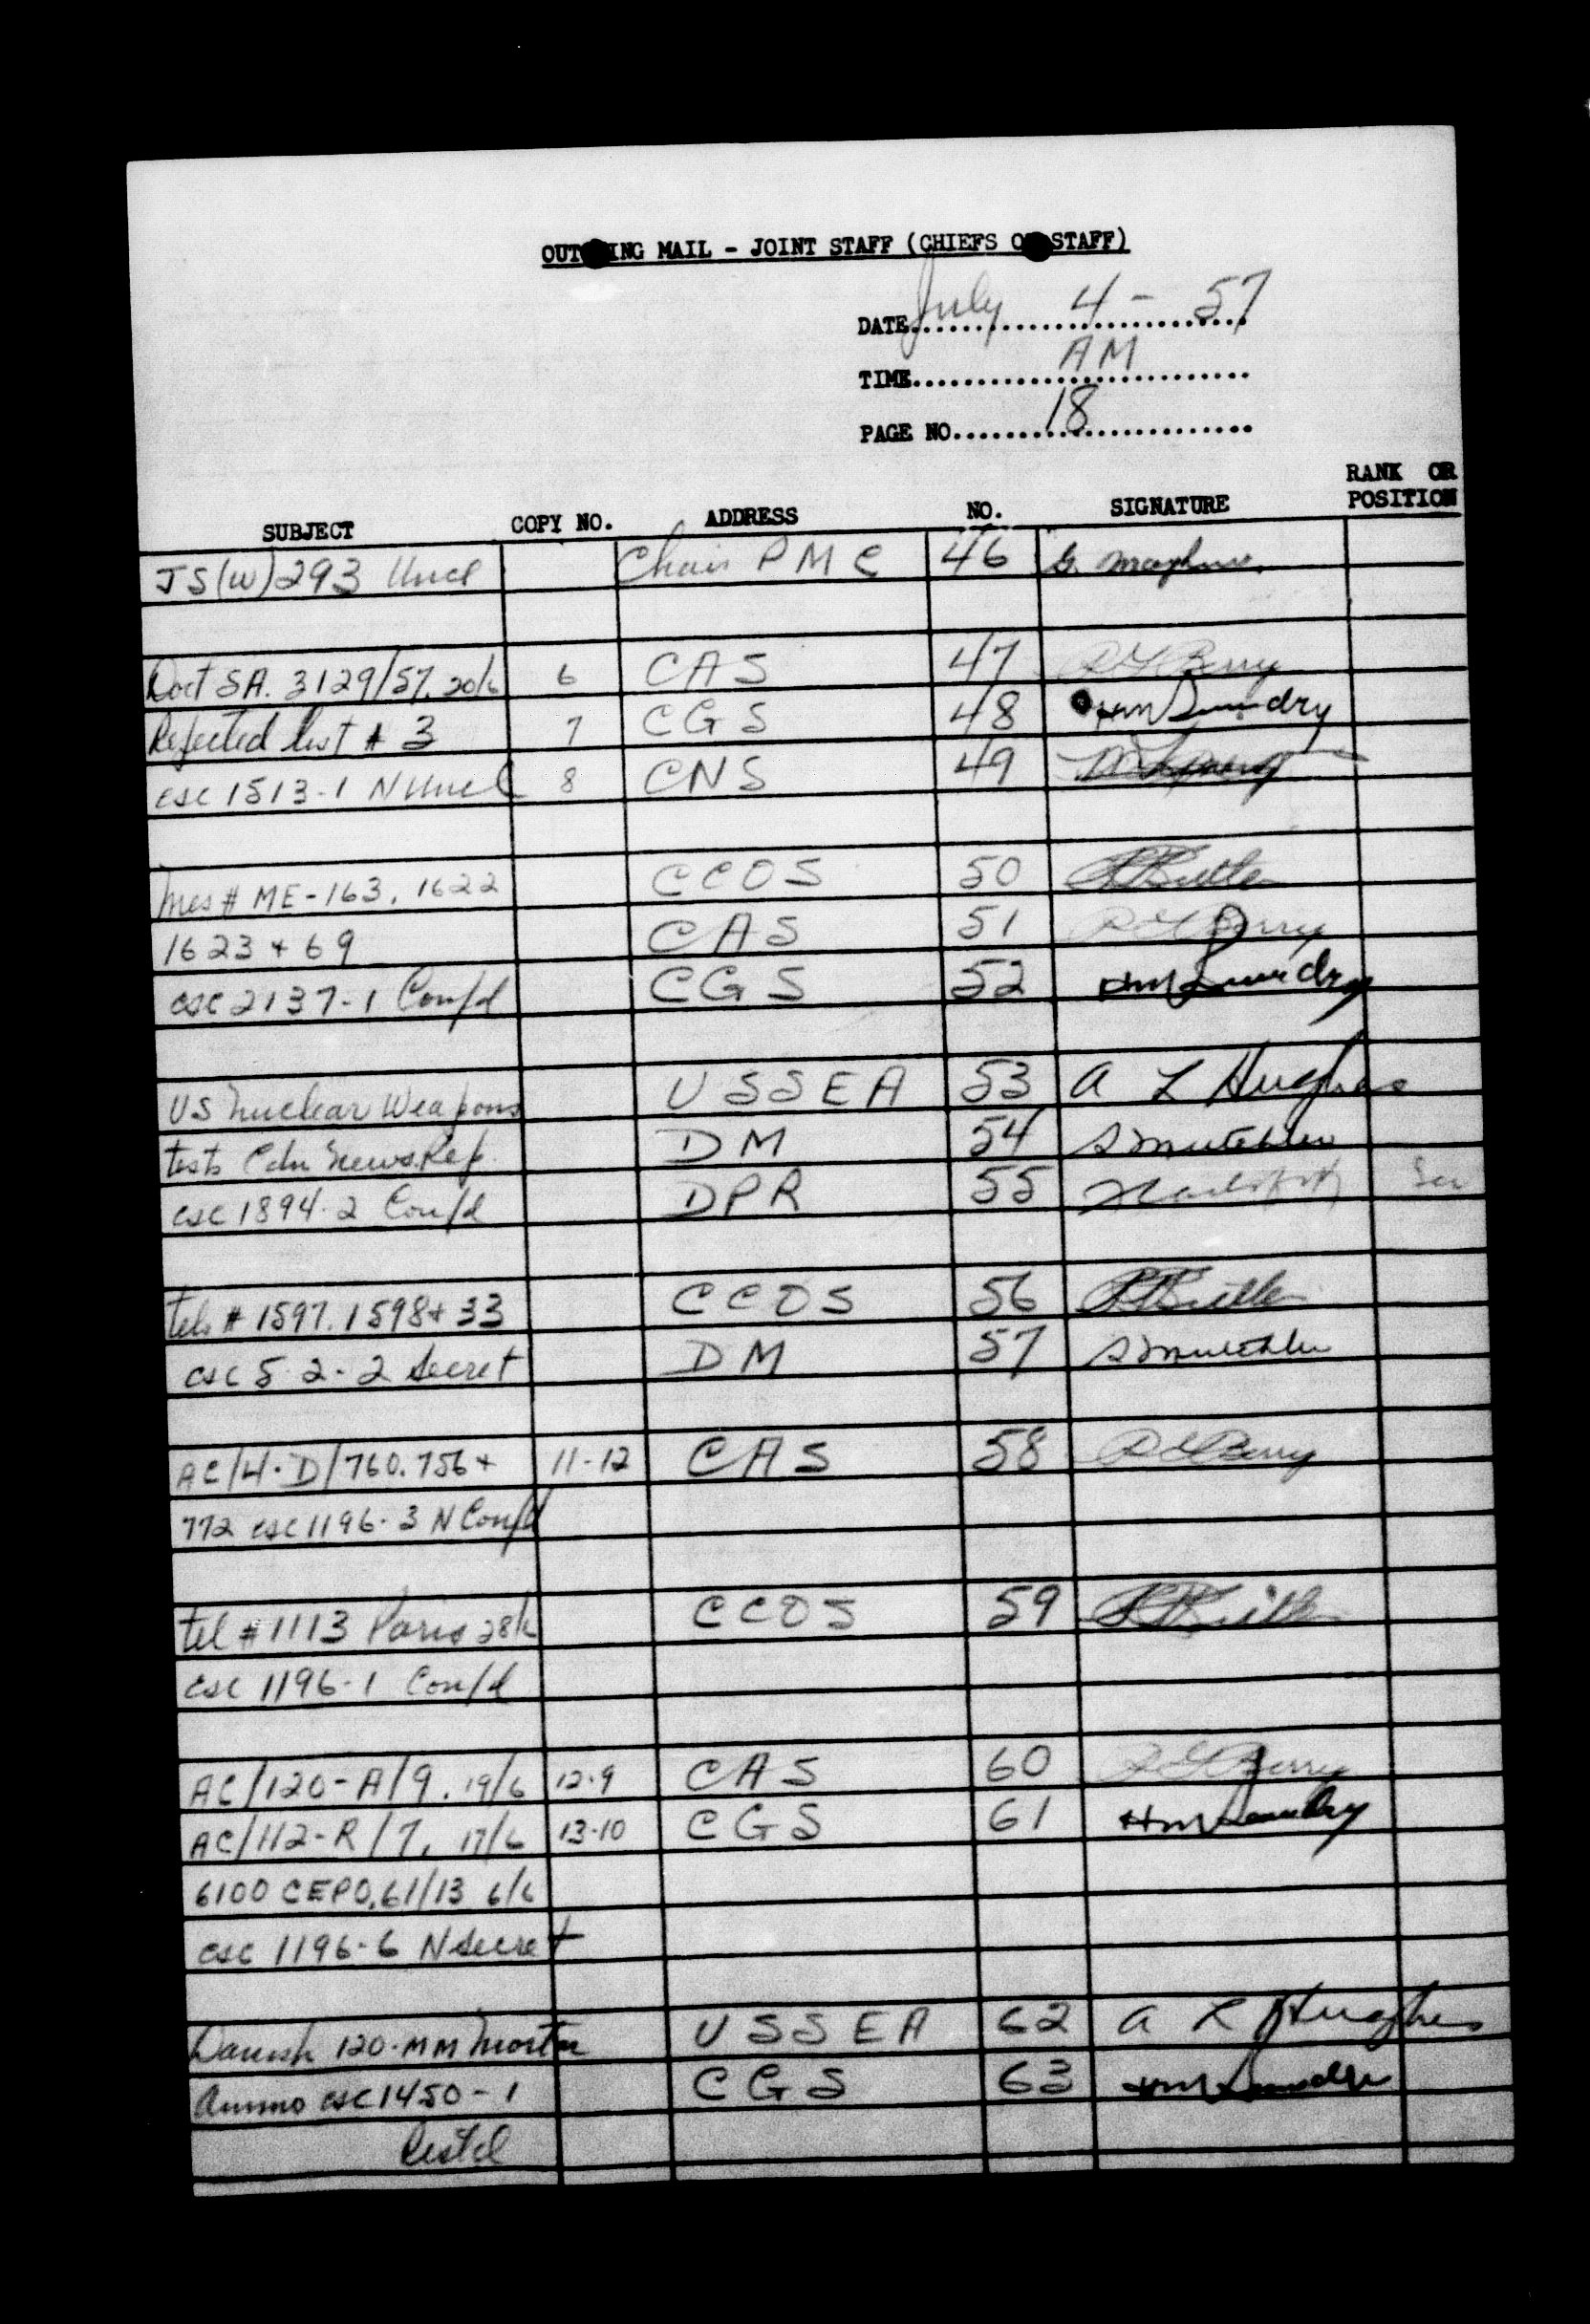 OUTGOING MAIL - JOINT STAFF (CHIEFS OF STAFF)
DATE July 4 - 57
TIME AM
PAGE NO. 18
SUBJECT COPY NO. ADDRESS NO. SIGNATURE RANK OR POSITION
JS(W)293 Uncl Chair PMC 46 G.
Doct SA. 3129/57. 20/6 6 CAS 47 Berry
Rejected list # 3 7 CGS 48 HM
csc 1513-1 N Uncl 8 CNS 49
Mes # ME-163, 1622 CCOS 50 Butler
1623 + 69 CAS 51 Berry
csc 2137-1 Conf'd CGS 52 HM
US Nuclear Weapons USSEA 53 A L Hughes
tests Cdn News Rep. DM 54
csc 1894-2 Conf'd DPR 55
tels # 1597. 1598 + 33 CCOS 56 Butler
csc 5-2-2 Secret DM 57
AC/4-D/760. 756 + 11-12 CAS 58 Berry
772 csc 1196-3 N Conf'd
tel # 1113 Paris 28/6 CCOS 59 Butler
csc 1196-1 Conf'd
AC/120-A/9. 19/6 12-9 CAS 60 Berry
AC/112-R/7. 17/6 13-10 CGS 61 HM
6100 CEPO.61/13 6/6
csc 1196-6 N Secret
Danish 120-MM Mortar USSEA 62 A L Hughes
Ammo csc 1450-1 CGS 63 HM
Restd